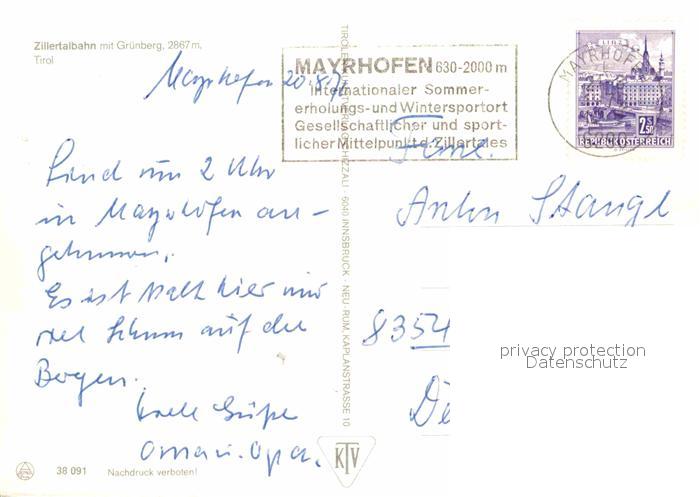 Zillertalbahn mit Grünberg, 2867 m,
Tirol
Mayrhofen 20.8.
MAYRHOFEN 630-2000 m
Internationaler Sommer-
erholungs- und Wintersportort
Gesellschaftlicher und sport-
licher Mittelpunkt d. Zillertales
MAYRHOFEN
6290
LINZ
2S50
REPUBLIK ÖSTERREICH
Sind um 2 Uhr
in Mayrhofen an-
gekommen.
Es ist kalt hier und
viel Schnee auf den
Bergen.
Viele Grüße
Oma u. Opa.
Fam.
Anton Stangl
8354
De
TIROLER KUNSTVERLAG CHIZZALI · 6040 INNSBRUCK - NEU-RUM, KAPLANSTRASSE 10
KTV
privacy protection
Datenschutz
38 091 Nachdruck verboten!